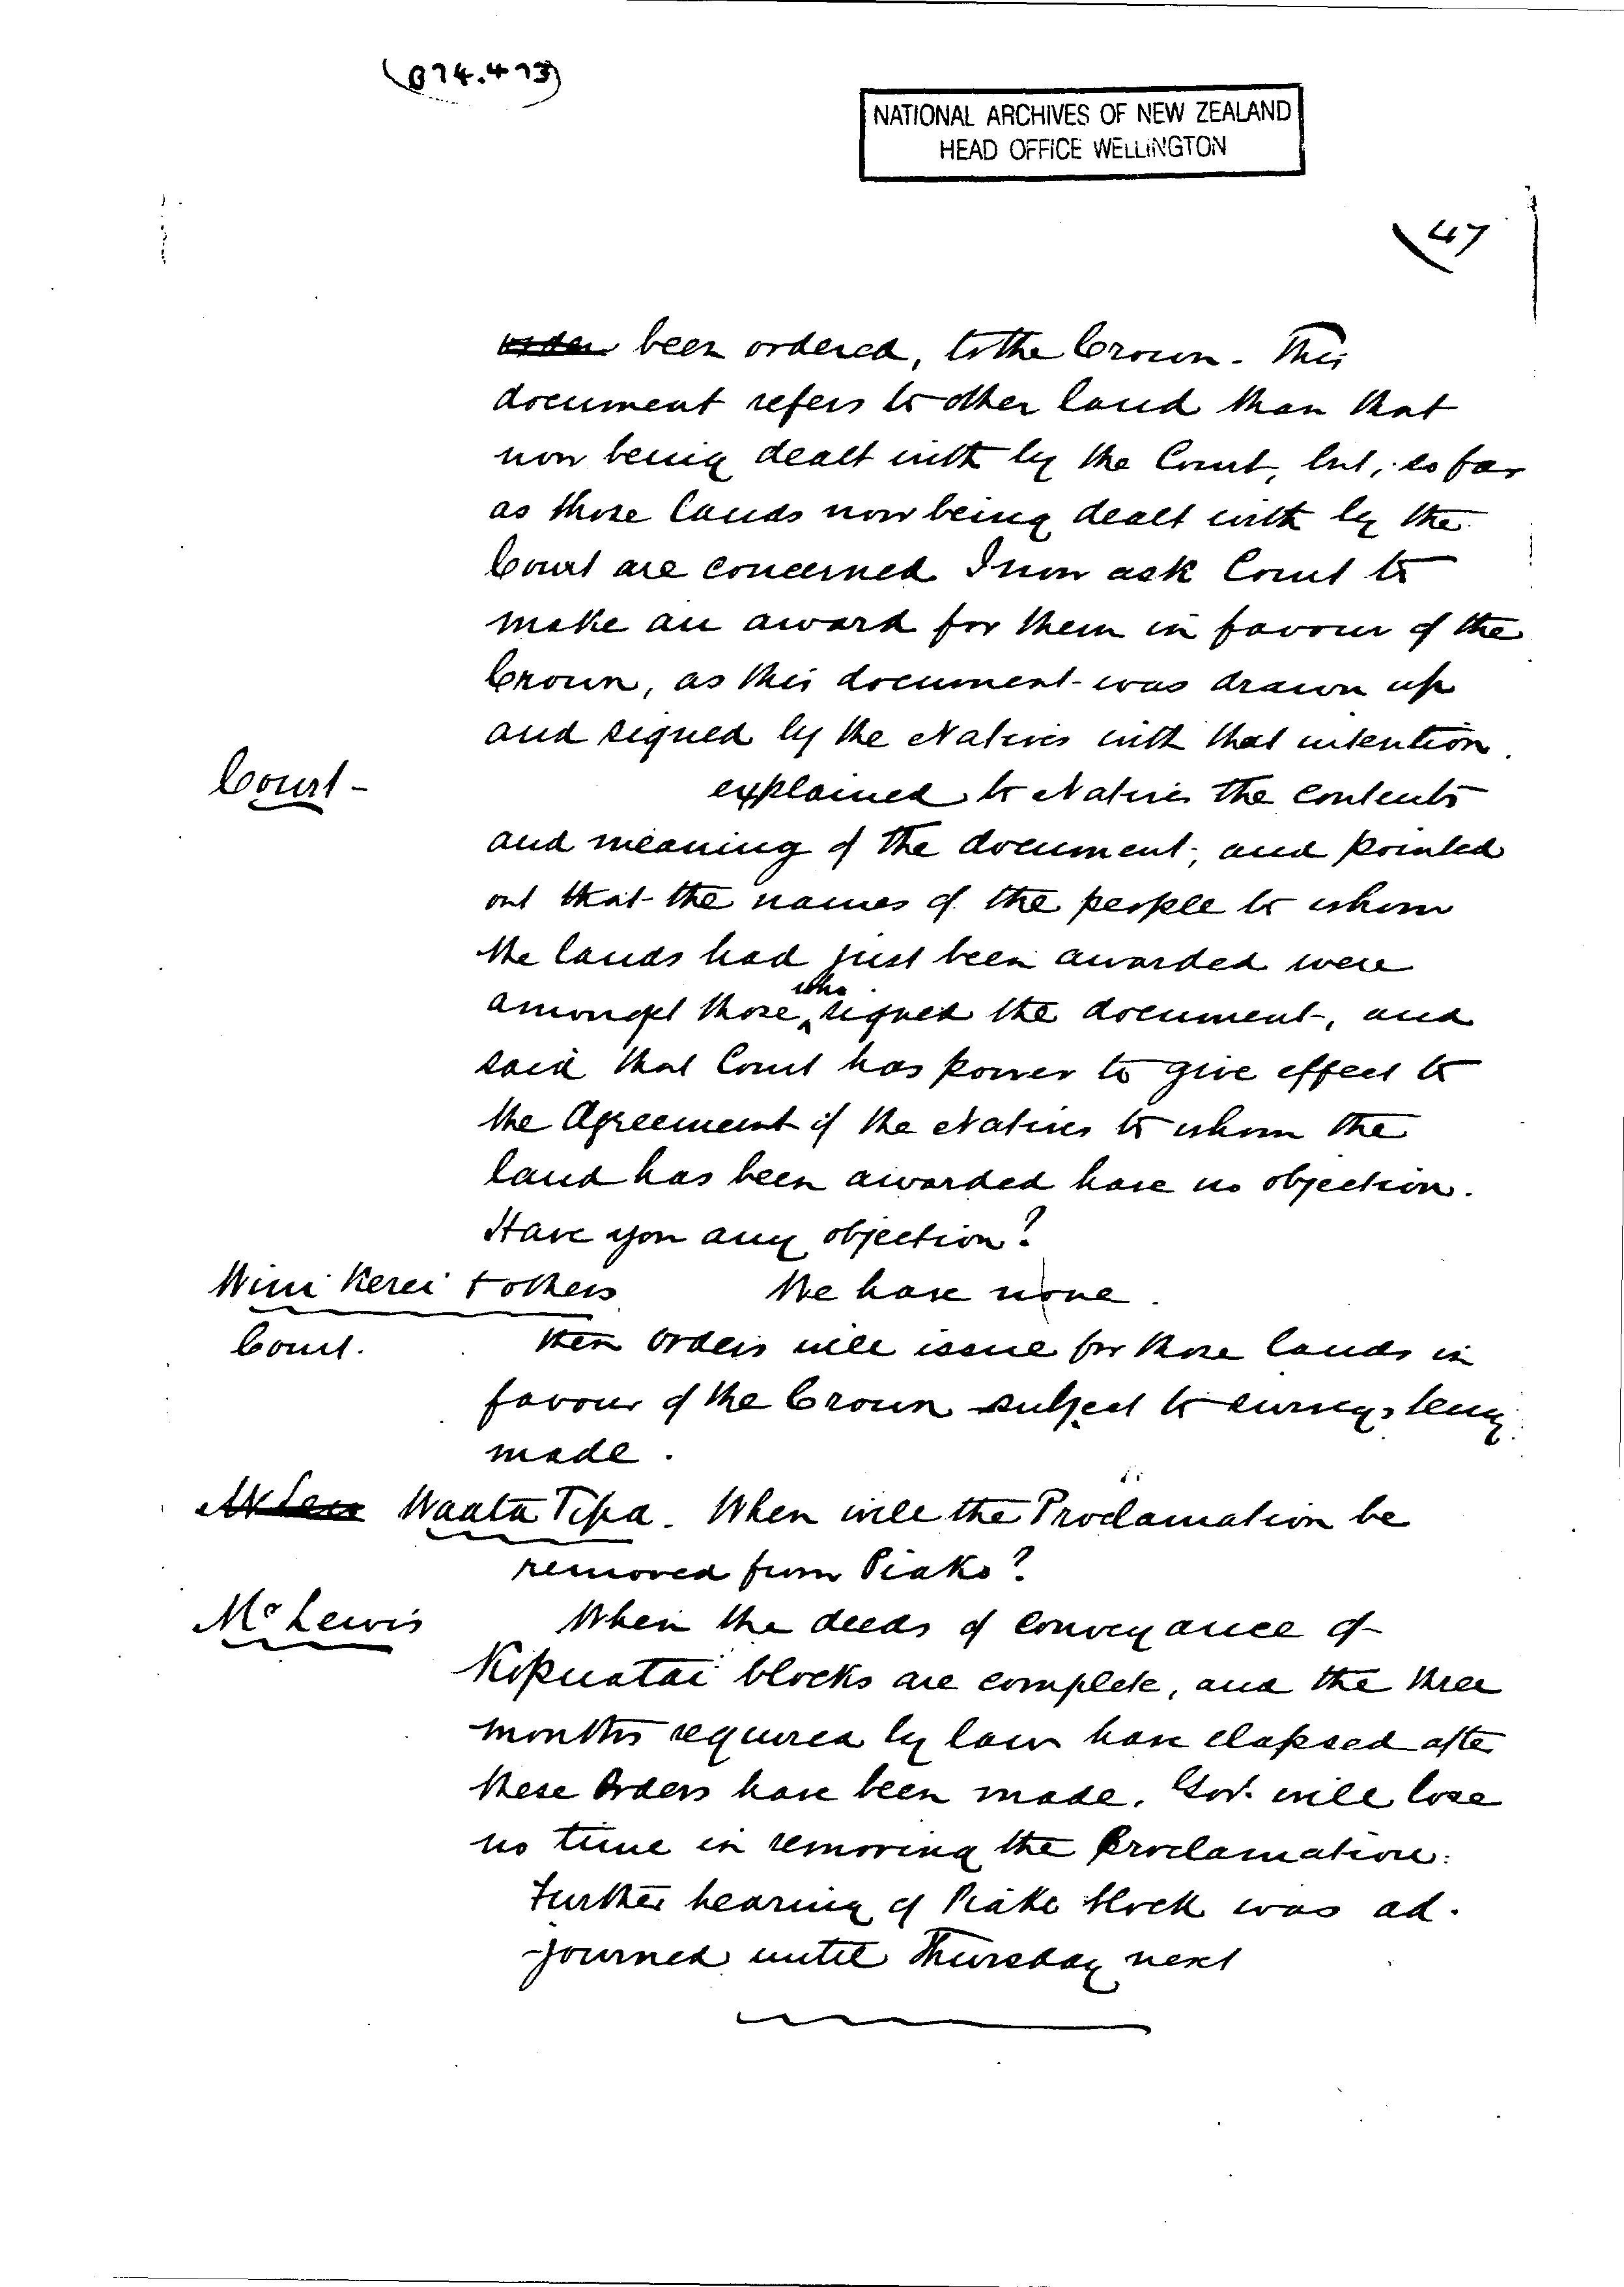 (B74.473)
NATIONAL ARCHIVES OF NEW ZEALAND
HEAD OFFICE WELLINGTON
47
order been ordered, to the Crown. This
document refers to other land than that
now being dealt with by the Court, but, so far
as those lands now being dealt with by the
Court are concerned I now ask Court to
make an award for them in favour of the
Crown, as this document was drawn up
and signed by the Natives with that intention.
Court - explained to Natives the contents
and meaning of the document, and pointed
out that the names of the people to whom
the lands had just been awarded were
amongst those who signed the document, and
said that Court has power to give effect to
the Agreement if the Natives to whom the
land has been awarded have no objection.
Have you any objection?
Wini Kerei & others We have none.
Court. Then Orders will issue for those lands in
favour of the Crown subject to surveys being
made.
Waata Tipa. When will the Proclamation be
removed from Piako?
Mr Lewis When the deeds of conveyance of
Kopuatai blocks are complete, and the three
months required by law have elapsed after
these Orders have been made. Govt. will lose
no time in removing the Proclamation.
Further hearing of Piako block was ad-
-journed until Thursday next